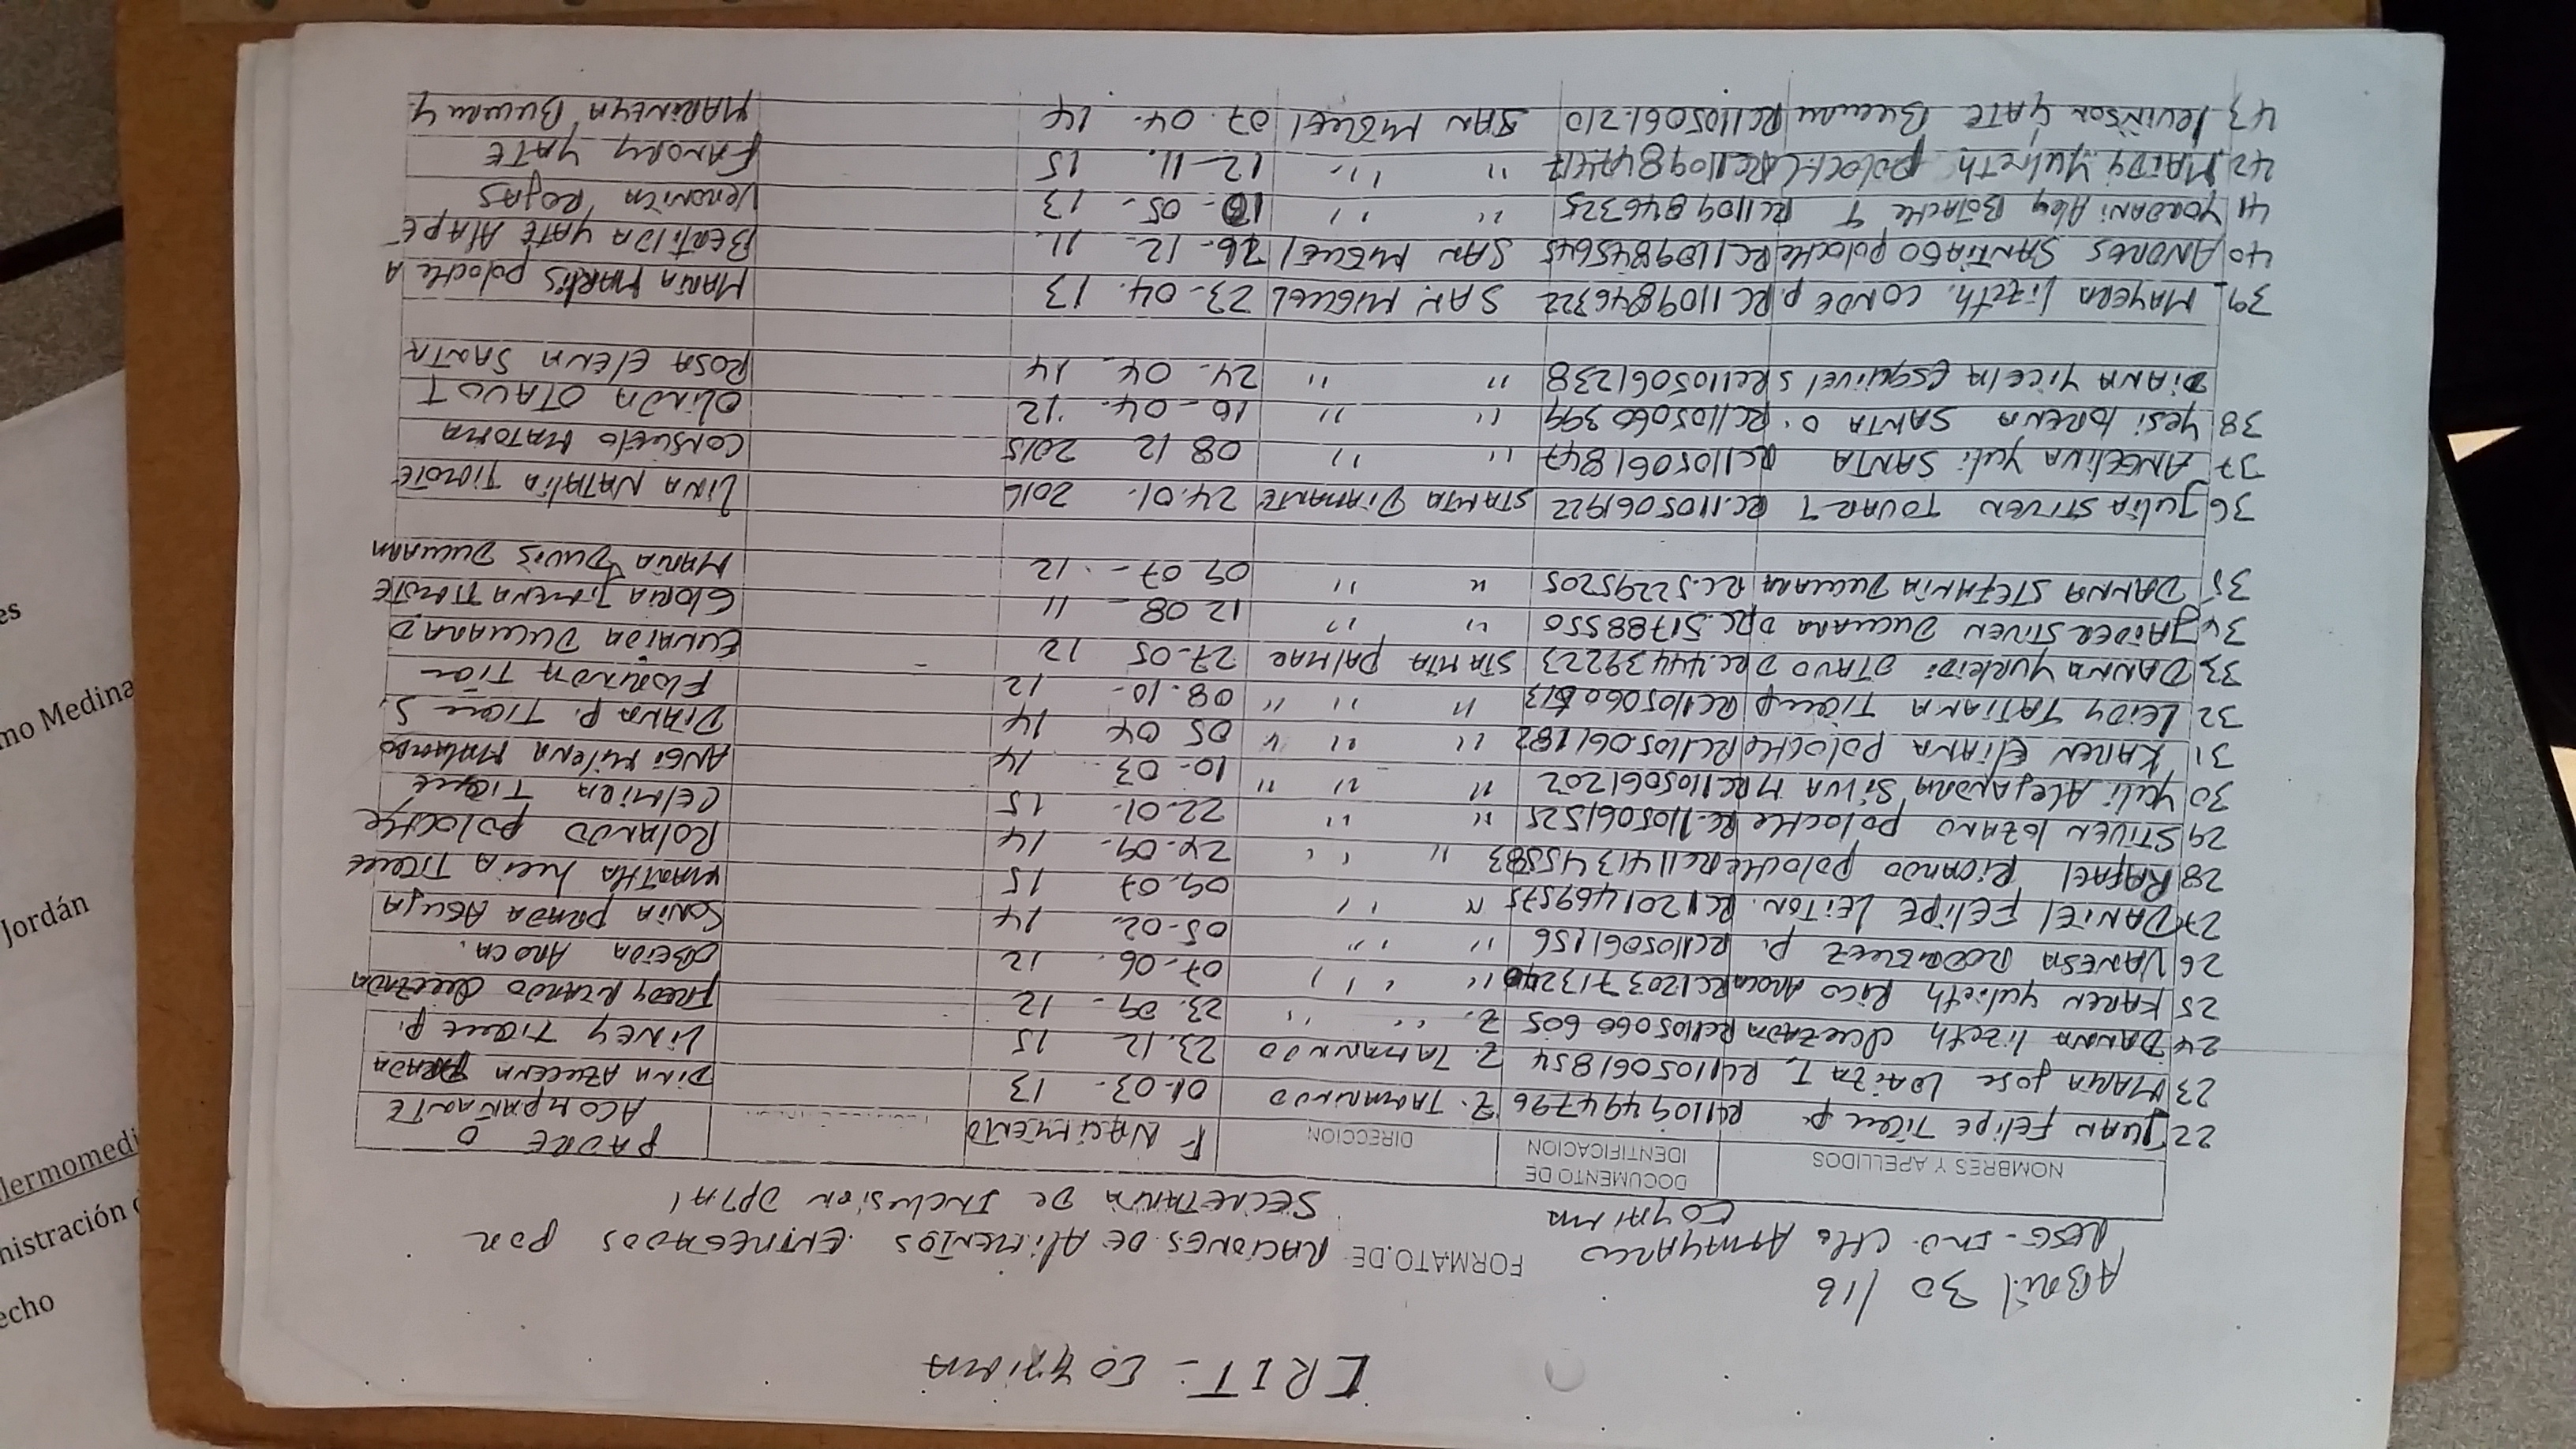 CRIT - COYAIMA
ABRIL 30/16
RESG-IND. CHE AMAYARCO
COYAIMA
FORMATO DE RACIONES DE ALIMENTOS ENTREGADOS POR
SECRETARIA DE INCLUSION DPTAL
NOMBRES Y APELLIDOS DOCUMENTO DE IDENTIFICACION DIRECCION F NACIMIENTO PADRE O ACOMPAÑANTE
22 JUAN FELIPE TIQUE P. RC1109494796 Z. TAMARINDO 01.03- 13 DINA AZUCENA PRADA
23 MARIA JOSE LOAIZA T. RC1105061854 Z. TAMARINDO 23.12 15 LINEY TIQUE P.
24 DANNA LIZETH QUEZADA RC1105060605 Z. " " 23.09- 12 FREDY RIZANDO QUEZADA
25 KAREN YULIETH RICO AROCA RC1203713240 " " " 07-06. 12 OBEIDA AROCA.
26 VANESA RODRIGUEZ P. RC1105061156 " " 05-02. 14 SONIA PRADA AGUJA
27 DANIEL FELIPE LEITON. RC1201469575 " " 09.07 15 MARTHA LUCIA TIQUE
28 RAFAEL RICARDO POLOCHE RC1141345583 " " 24.09- 14 ROLANDO POLOCHE
29 STIVEN LOZANO POLOCHE RC.1105061525 " " 22.01. 15 CELMIRA TIQUE
30 YULI ALEJANDRA SILVA M RC1105061202 " " " 10-03- 14 ANGI MILENA MALAMBO
31 KAREN ELIANA POLOCHE RC1105061182 " " " 05 04 14 DIANA P. TIQUE S.
32 LEIDY TATIANA TIQUE P RC1105060613 " " " 08.10- 12 FLORINDA TIQUE
33 DANNA YURLEIDI OTAVO D RC.44439223 STAMTA PALMAR 27-05 12 EUNAIDA DUCUARA D
34 JAIDER STIVEN DUCUARA D RC.51788550 " " 12.08- 11 GLORIA JIMENA TIMOTE
35 DANNA STEFANIA DUCUARA RC.52295205 " " 09.07- 12 MARIA DUVIS DUCUARA
36 JULIA STIVEN TOVAR T RC.1105061922 STAMTA DIAMANTE 24.01. 2016 LINA NATALIA TIMOTE
37 ANGELINA YULI SANTA RC1105061847 " " 08 12 2015 CONSUELO MATOMA
38 YESI LORENA SANTA O. RC1105060399 " " 10-04. 12 OLINDA OTAVO T
DIANA YICELA ESQUIVEL S RC1105061238 " " 24- 04- 14 ROSA ELENA SANTA
39 MAYERA LIZETH. CONDE P. RC1109846322 SAN MIGUEL 23-04. 13 MARIA MARLIS POLOCHE A
40 ANDRES SANTIAGO POLOCHE RC1109845645 SAN MIGUEL 26-12- 11. BERTILDA YATE ALAPE
41 YORDANI ALEX BOTACHE Y RC1109846325 " " 10-05- 13 VERONICA ROJAS
42 MAIDY YULIETH POLOCHE RC1109847417 " " 12-11. 15 FANORY YATE
43 LEVINSON YATE BUCURU RC1105061210 SAN MIGUEL 07.04. 14 MARINEYA BUCURU Y.
es
mo Medina
Jordán
lermomedi
nistración
echo